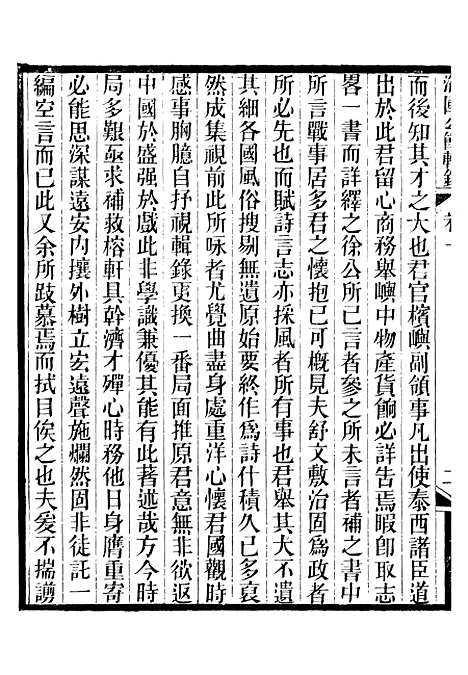 而後知其才之大也君官檳嶼副領事凡出使泰西諸臣道
出於此君留心商務舉嶼中物產貨餉必詳告焉暇卽取志
畧一書而詳繹之徐公所已言者參之所未言者補之書中
所言戰事居多君之懷抱已可槪見夫舒文敷治固爲政者
所必先也而賦詩言志亦採風者所有事也君舉其大不遺
其細各國風俗搜剔無遺原始要終作爲詩什積久已多裒
然成集視前此所咏者尤覺曲盡身處重洋心懷君國觀時
感事胸臆自抒視輯錄更換一番局面推原君意無非欲返
中國於盛强於戲此非學識兼優其能有此著述哉方今時
局多艱亟求補救榕軒具幹濟才殫心時務他日身膺重寄
必能思深謀遠安內攘外樹立宏遠聲施爛然固非徒託一
編空言而已此又余所跂慕焉而拭目俟之也夫爰不揣謭